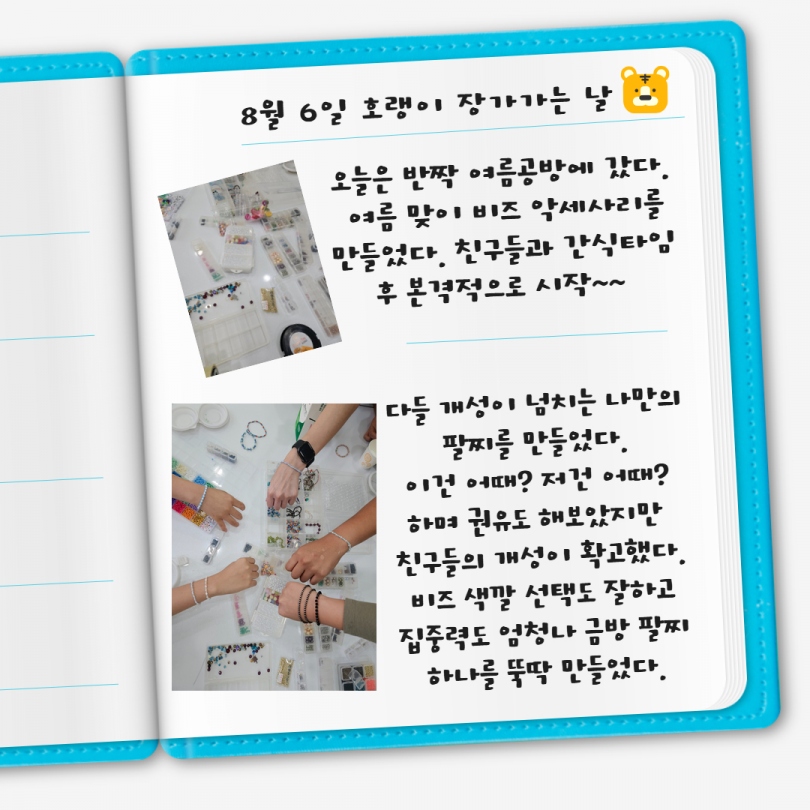 8월 6일 호랭이 장가가는 날
오늘은 반짝 여름공방에 갔다.
여름 맞이 비즈 악세사리를
만들었다. 친구들과 간식타임
후 본격적으로 시작~~
다들 개성이 넘치는 나만의
팔찌를 만들었다.
이건 어때? 저건 어때?
하며 권유도 해보았지만
친구들의 개성이 확고했다.
비즈 색깔 선택도 잘하고
집중력도 엄청나 금방 팔찌
하나를 뚝딱 만들었다.